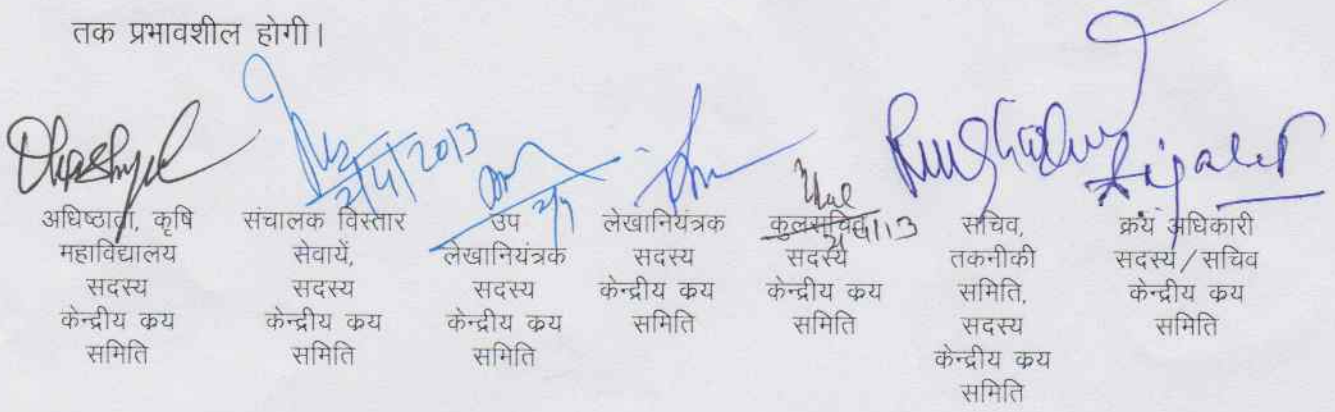 तक प्रभावशील होगी।
2/4/2013
अधिष्ठाता, कृषि
महाविद्यालय
सदस्य
केन्द्रीय कय
समिति
संचालक विस्तार
सेवायें,
सदस्य
केन्द्रीय कय
समिति
उप
लेखानियंत्रक
सदस्य
केन्द्रीय कय
समिति
लेखानियंत्रक
सदस्य
केन्द्रीय कय
समिति
कुलसचिव
सदस्य
केन्द्रीय कय
समिति
सचिव,
तकनीकी
समिति,
सदस्य
केन्द्रीय कय
समिति
क्रय अधिकारी
सदस्य/सचिव
केन्द्रीय कय
समिति